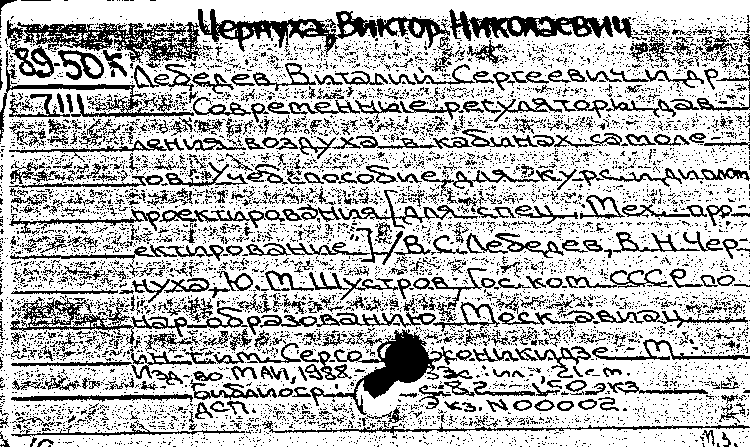 Чернуха, Виктор Николаевич
89-50К
7111
Лебедев, Виталий Сергеевич и др
Современные регуляторы дав-
ления воздуха в кабинах самоле-
тов: Учеб. пособие для курс. и диплом
проектирования [для спец. "Мех. про-
ектирование"] / В.С. Лебедев, В.Н. Чер-
нуха, Ю.М. Шустров; Гос. ком. СССР по
нар образованию, Моск авиац
ин-т им. Серго Орджоникидзе - М.:
Изд-во МАИ, 1988. - ил.; 21 см.
Библиогр.: с. 82 150 экз
ДСП. Экз. N 00002.